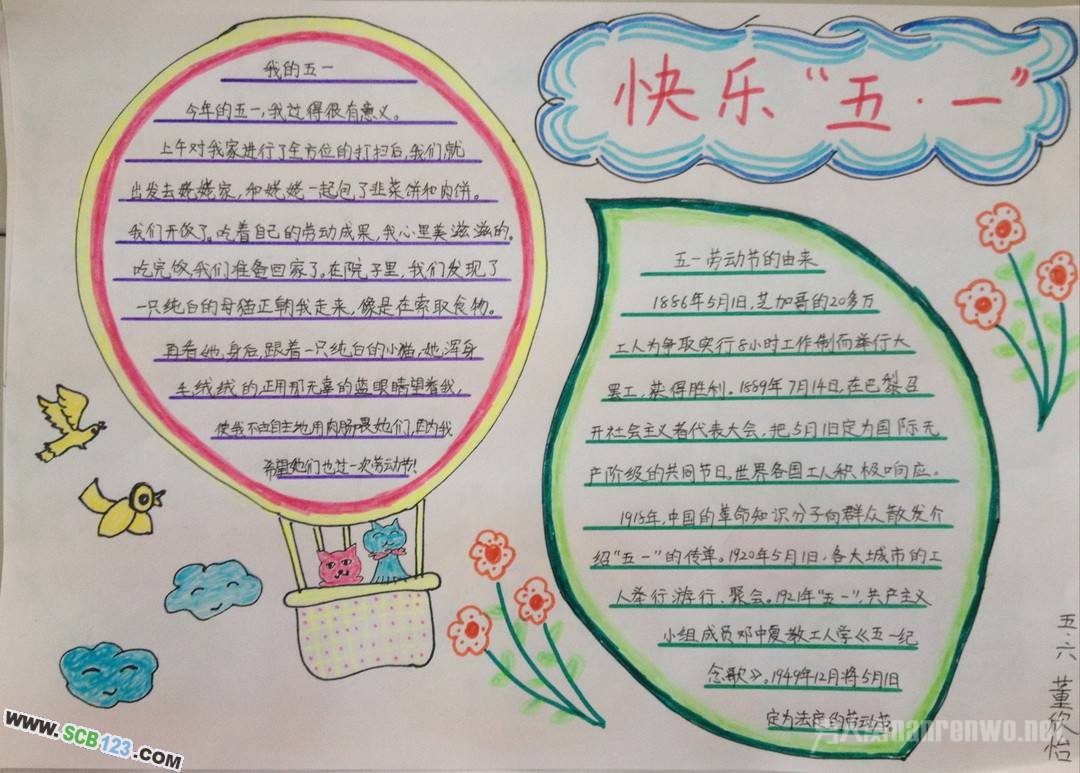 快乐“五·一”
我的五一
今年的五一,我过得很有意义。
上午对我家进行了全方位的打扫后,我们就
出发去姥姥家,和姥姥一起包了韭菜饼和肉饼。
我们开饭了。吃着自己的劳动成果,我心里美滋滋的。
吃完饭,我们准备回家了。在院子里,我们发现了
一只纯白的母猫正朝我走来,像是在索取食物。
再看她身后,跟着一只纯白的小猫,她浑身
毛绒绒的正用那无辜的蓝眼睛望着我,
使我不由自主地用肉肠喂她们,因为我
希望她们也过一次劳动节!
五一劳动节的由来
1886年5月1日,芝加哥的20多万
工人为争取实行8小时工作制而举行大
罢工,获得胜利。1889年7月14日,在巴黎召
开社会主义者代表大会,把5月1日定为国际无
产阶级的共同节日。世界各国工人积极响应。
1918年,中国的革命知识分子向群众散发介
绍“五一”的传单。1920年5月1日,各大城市的工
人举行游行、聚会。1921年“五一”,共产主义
小组成员邓中夏教工人学《五一纪
念歌》。1949年12月将5月1日
定为法定的劳动节
五·六 董欣怡
WWW.SCB123.COM
manrenwo.net